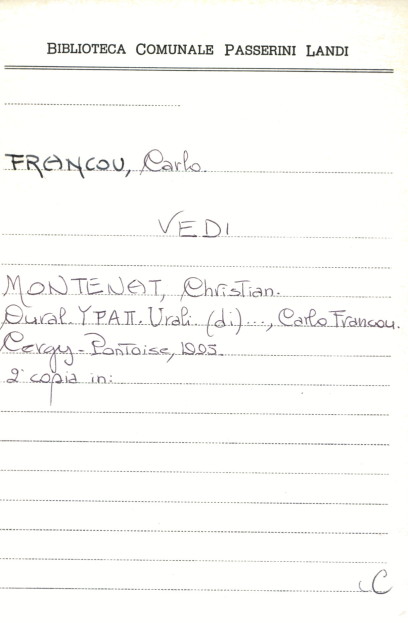 BIBLIOTECA COMUNALE PASSERINI LANDI
FRANCOU, Carlo.
VEDI
MONTENAT, Christian.
Oural. УРАП. Urali (di) ..., Carlo Francou.
Cergy-Pontoise, 1995.
2ª copia in:
C